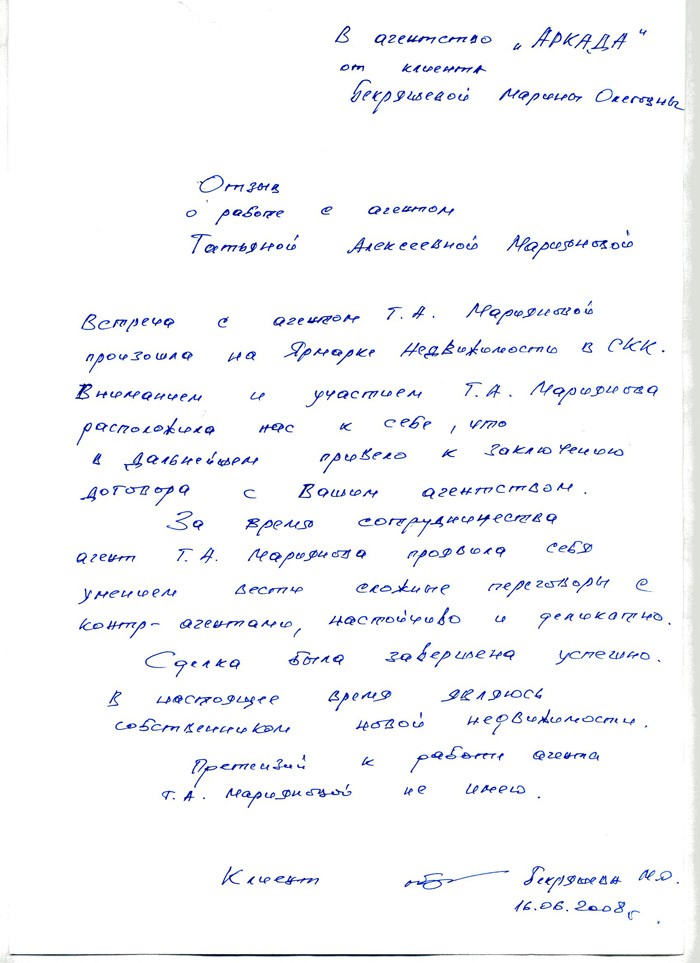 В агентство „АРКАДА"
от клиента
Бекряшевой Марины Олеговны
Отзыв
о работе с агентом
Татьяной Алексеевной
Встреча с агентом Т.А.
произошла на Ярмарке Недвижимости в СКК.
Вниманием и участием Т.А.
расположила нас к себе, что
в дальнейшем привело к заключению
договора с Вашим агентством.
За время сотрудничества
агент Т.А. проявила себя
умением вести сложные переговоры с
контр-агентами, настойчиво и деликатно.
Сделка была завершена успешно.
В настоящее время являюсь
собственником новой недвижимости.
Претензий к работе агента
Т.А. не имею.
Клиент Бекряшева М.О.
16.06.2008г.